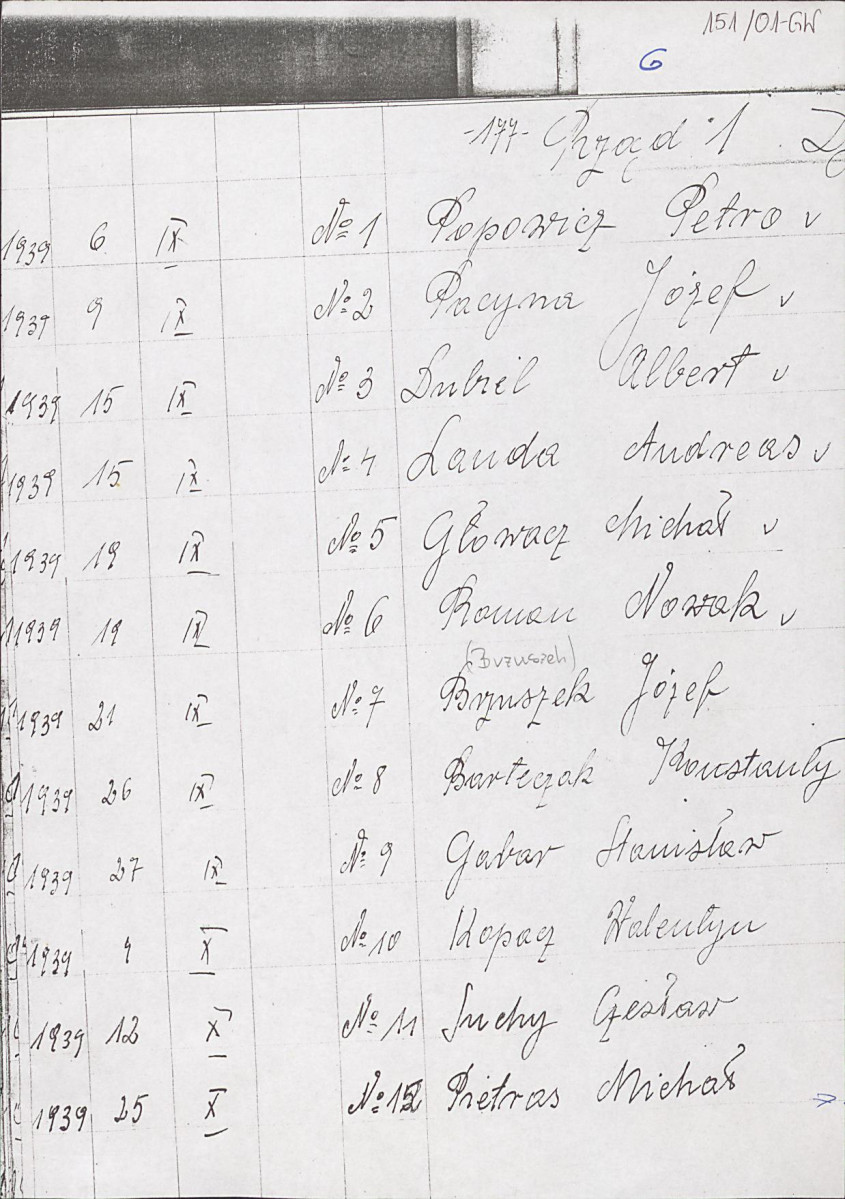 151/01-GW
6
-177- Rząd 1 D
1939 6 IX № 1 Popowicz Petro v
1939 9 IX № 2 Pacyna Józef v
1939 15 IX № 3 Dubiel Albert v
1939 15 IX № 4 Landa Andreas v
1939 19 IX № 5 Głowacz Michał v
1939 19 IX № 6 Roman Nowak v
(Brzuszek)
1939 21 IX № 7 Brzuszek Józef
1939 26 IX № 8 Bartczak Konstanty
1939 27 IX № 9 Gabar Stanisław
1939 4 X № 10 Kopacz Walentyn
1939 12 X № 11 Suchy Czesław
1939 25 X № 12 Pietras Michał